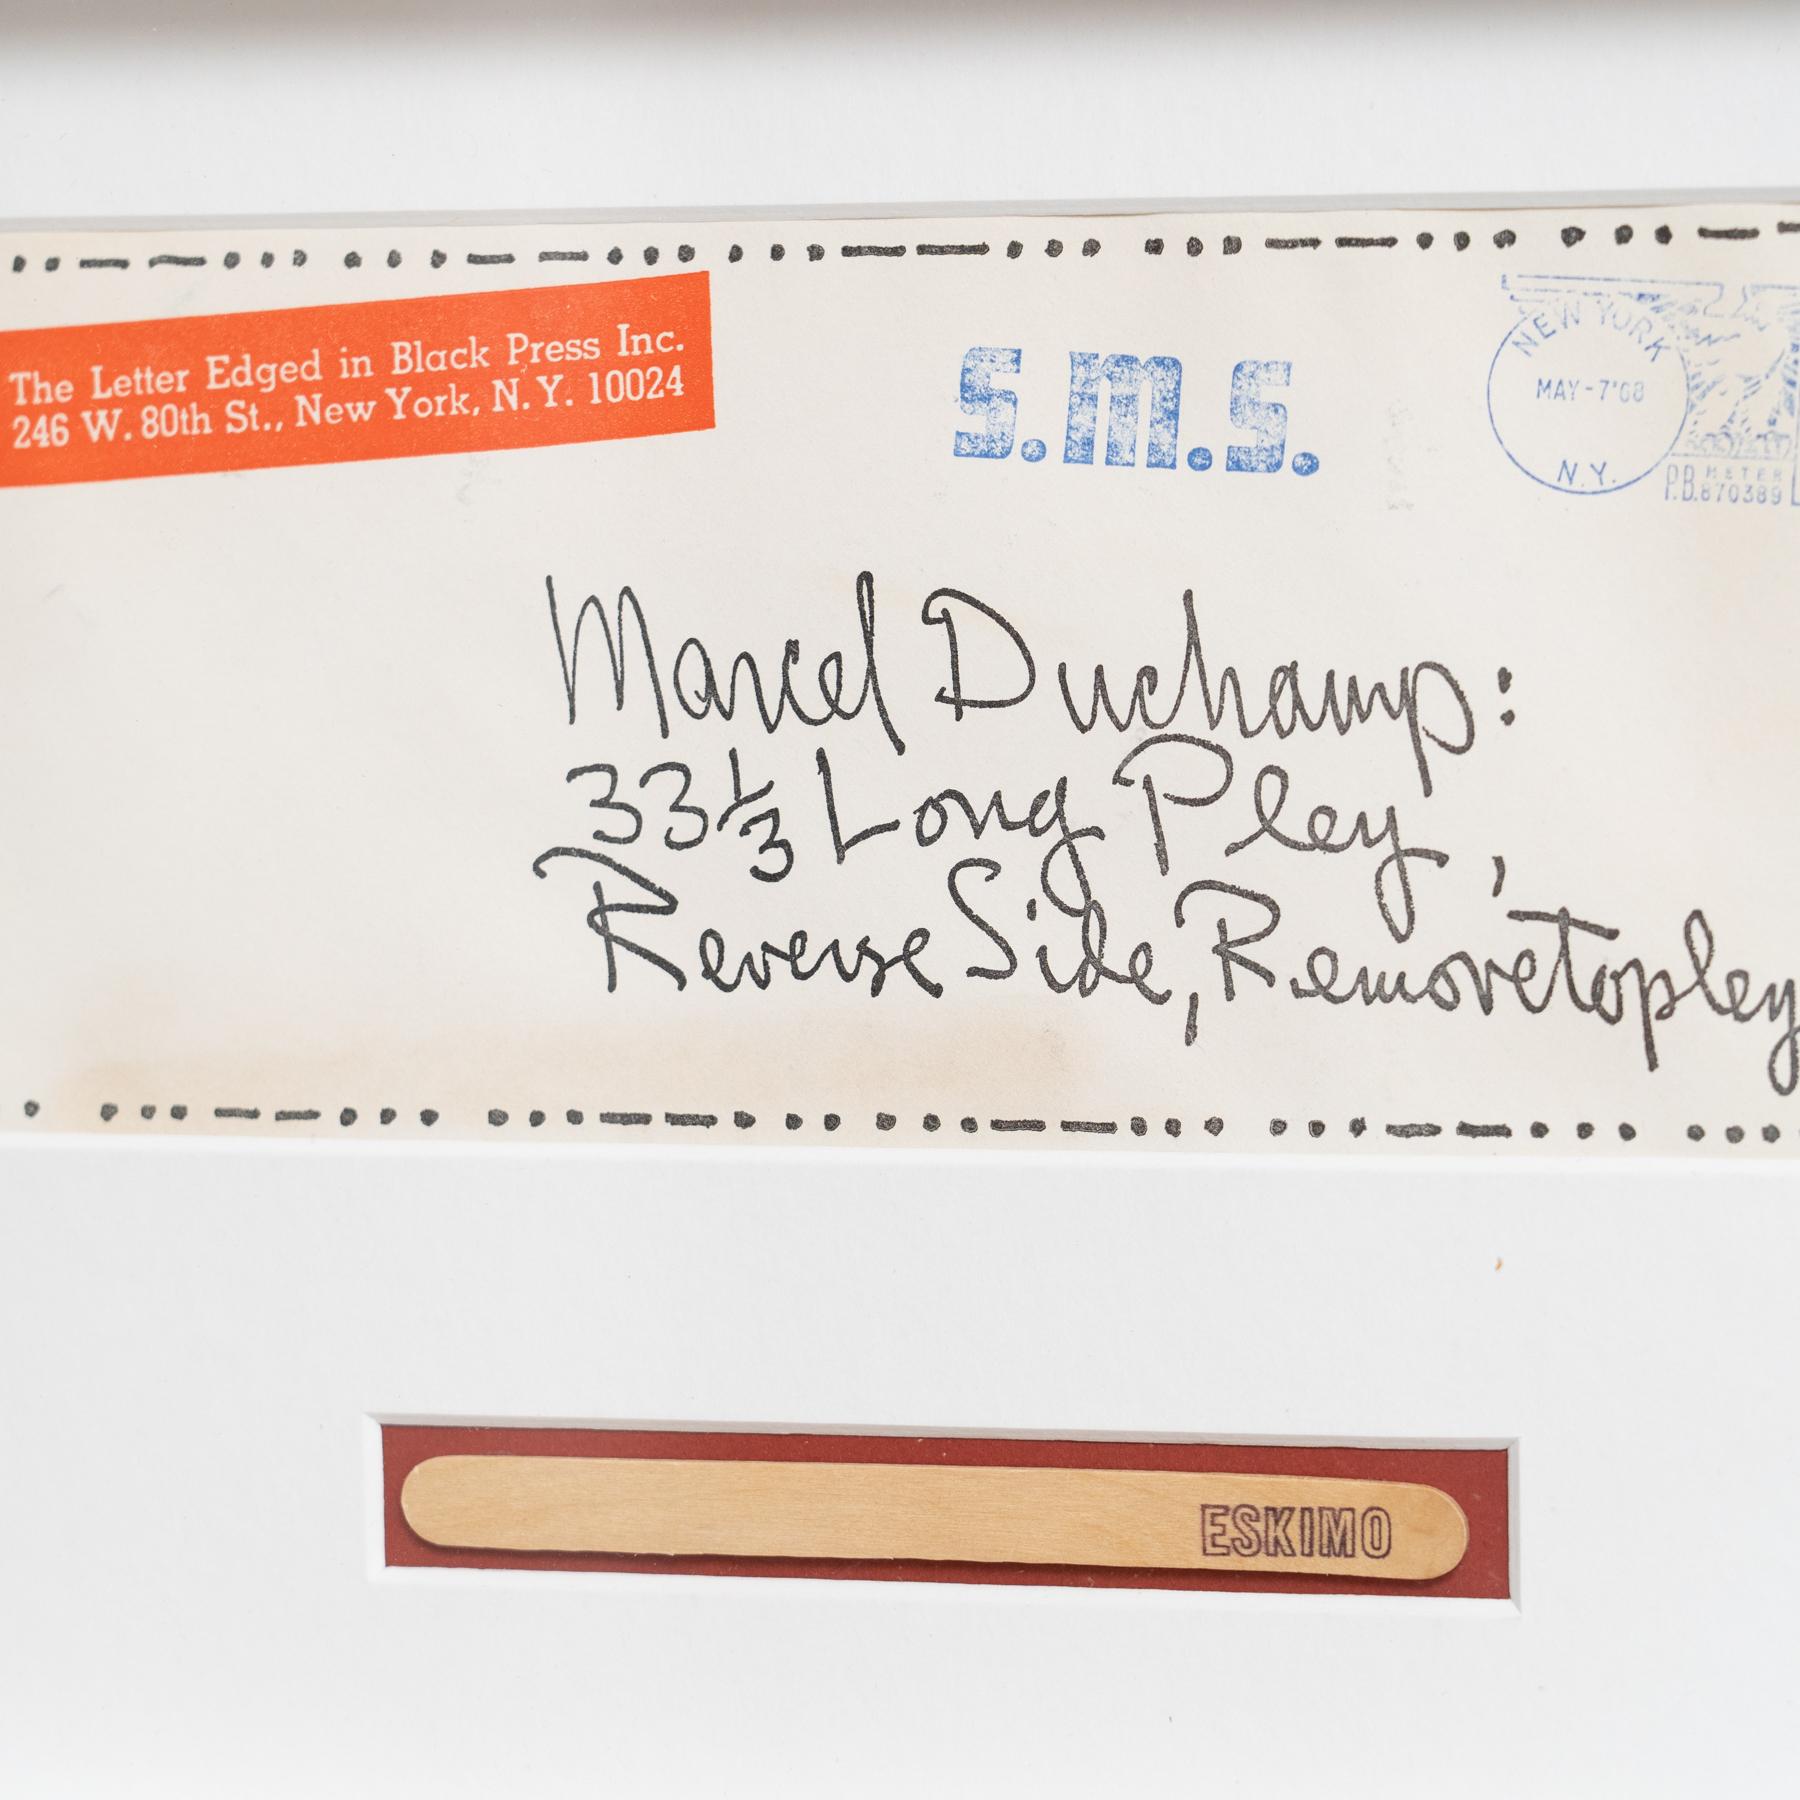 The Letter Edged in Black Press Inc.
246 W. 80th St., New York, N. Y. 10024
S.M.S.
NEW YORK
MAY-7'68
N.Y.
P.B. METER
870389
Marcel Duchamp:
33 1/3 Long Pley,
Reverse Side, Removetopley
ESKIMO